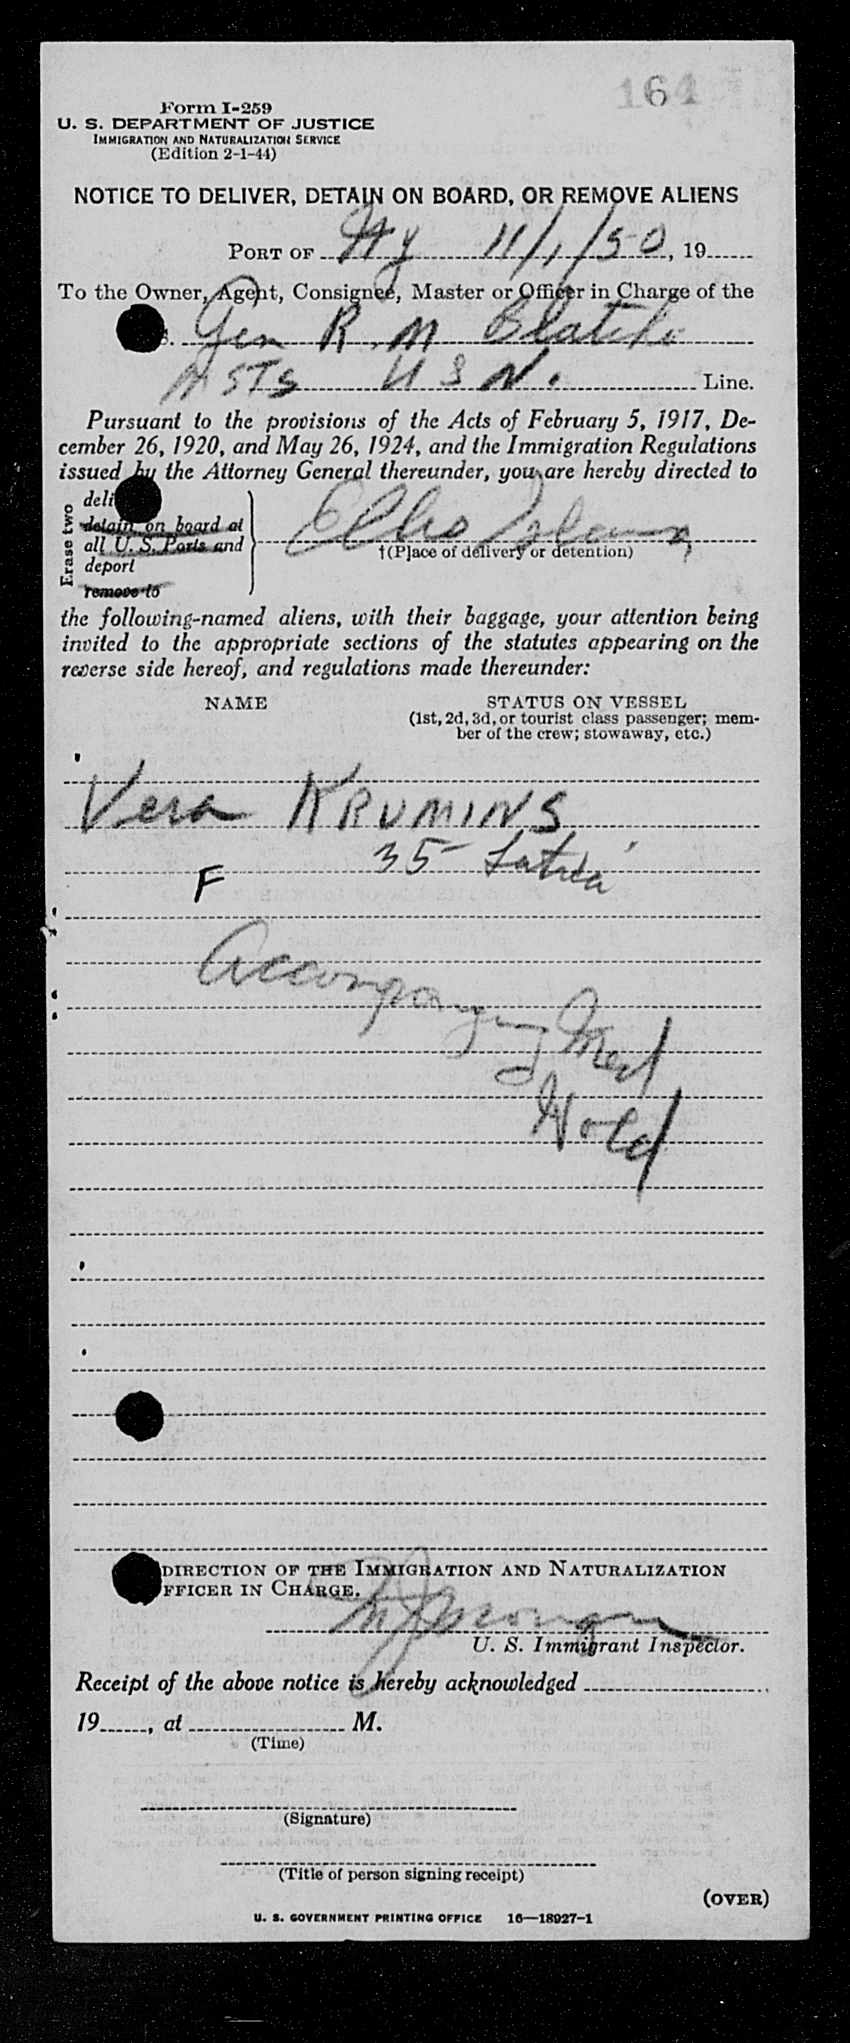 164
Form I-259
U. S. DEPARTMENT OF JUSTICE
IMMIGRATION AND NATURALIZATION SERVICE
(Edition 2-1-44)
NOTICE TO DELIVER, DETAIN ON BOARD, OR REMOVE ALIENS
PORT OF NY 11/1/50, 19
To the Owner, Agent, Consignee, Master or Officer in Charge of the
S. Gen R. M Blatchfo
MSTS U S N. Line.
Pursuant to the provisions of the Acts of February 5, 1917, De-
cember 26, 1920, and May 26, 1924, and the Immigration Regulations
issued by the Attorney General thereunder, you are hereby directed to
Erase two
deli
detain on board at
all U. S. Ports and
deport
remove to
Ellis Island
†(Place of delivery or detention)
the following-named aliens, with their baggage, your attention being
invited to the appropriate sections of the statutes appearing on the
reverse side hereof, and regulations made thereunder:
NAME STATUS ON VESSEL
(1st, 2d, 3d, or tourist class passenger; mem-
ber of the crew; stowaway, etc.)
Vera KRUMINS
F 35 Latvia
Accompanying Med
Hold
DIRECTION OF THE IMMIGRATION AND NATURALIZATION
FFICER IN CHARGE.
U. S. Immigrant Inspector.
Receipt of the above notice is hereby acknowledged
19, at M.
(Time)
(Signature)
(Title of person signing receipt)
(OVER)
U. S. GOVERNMENT PRINTING OFFICE 16—18927-1